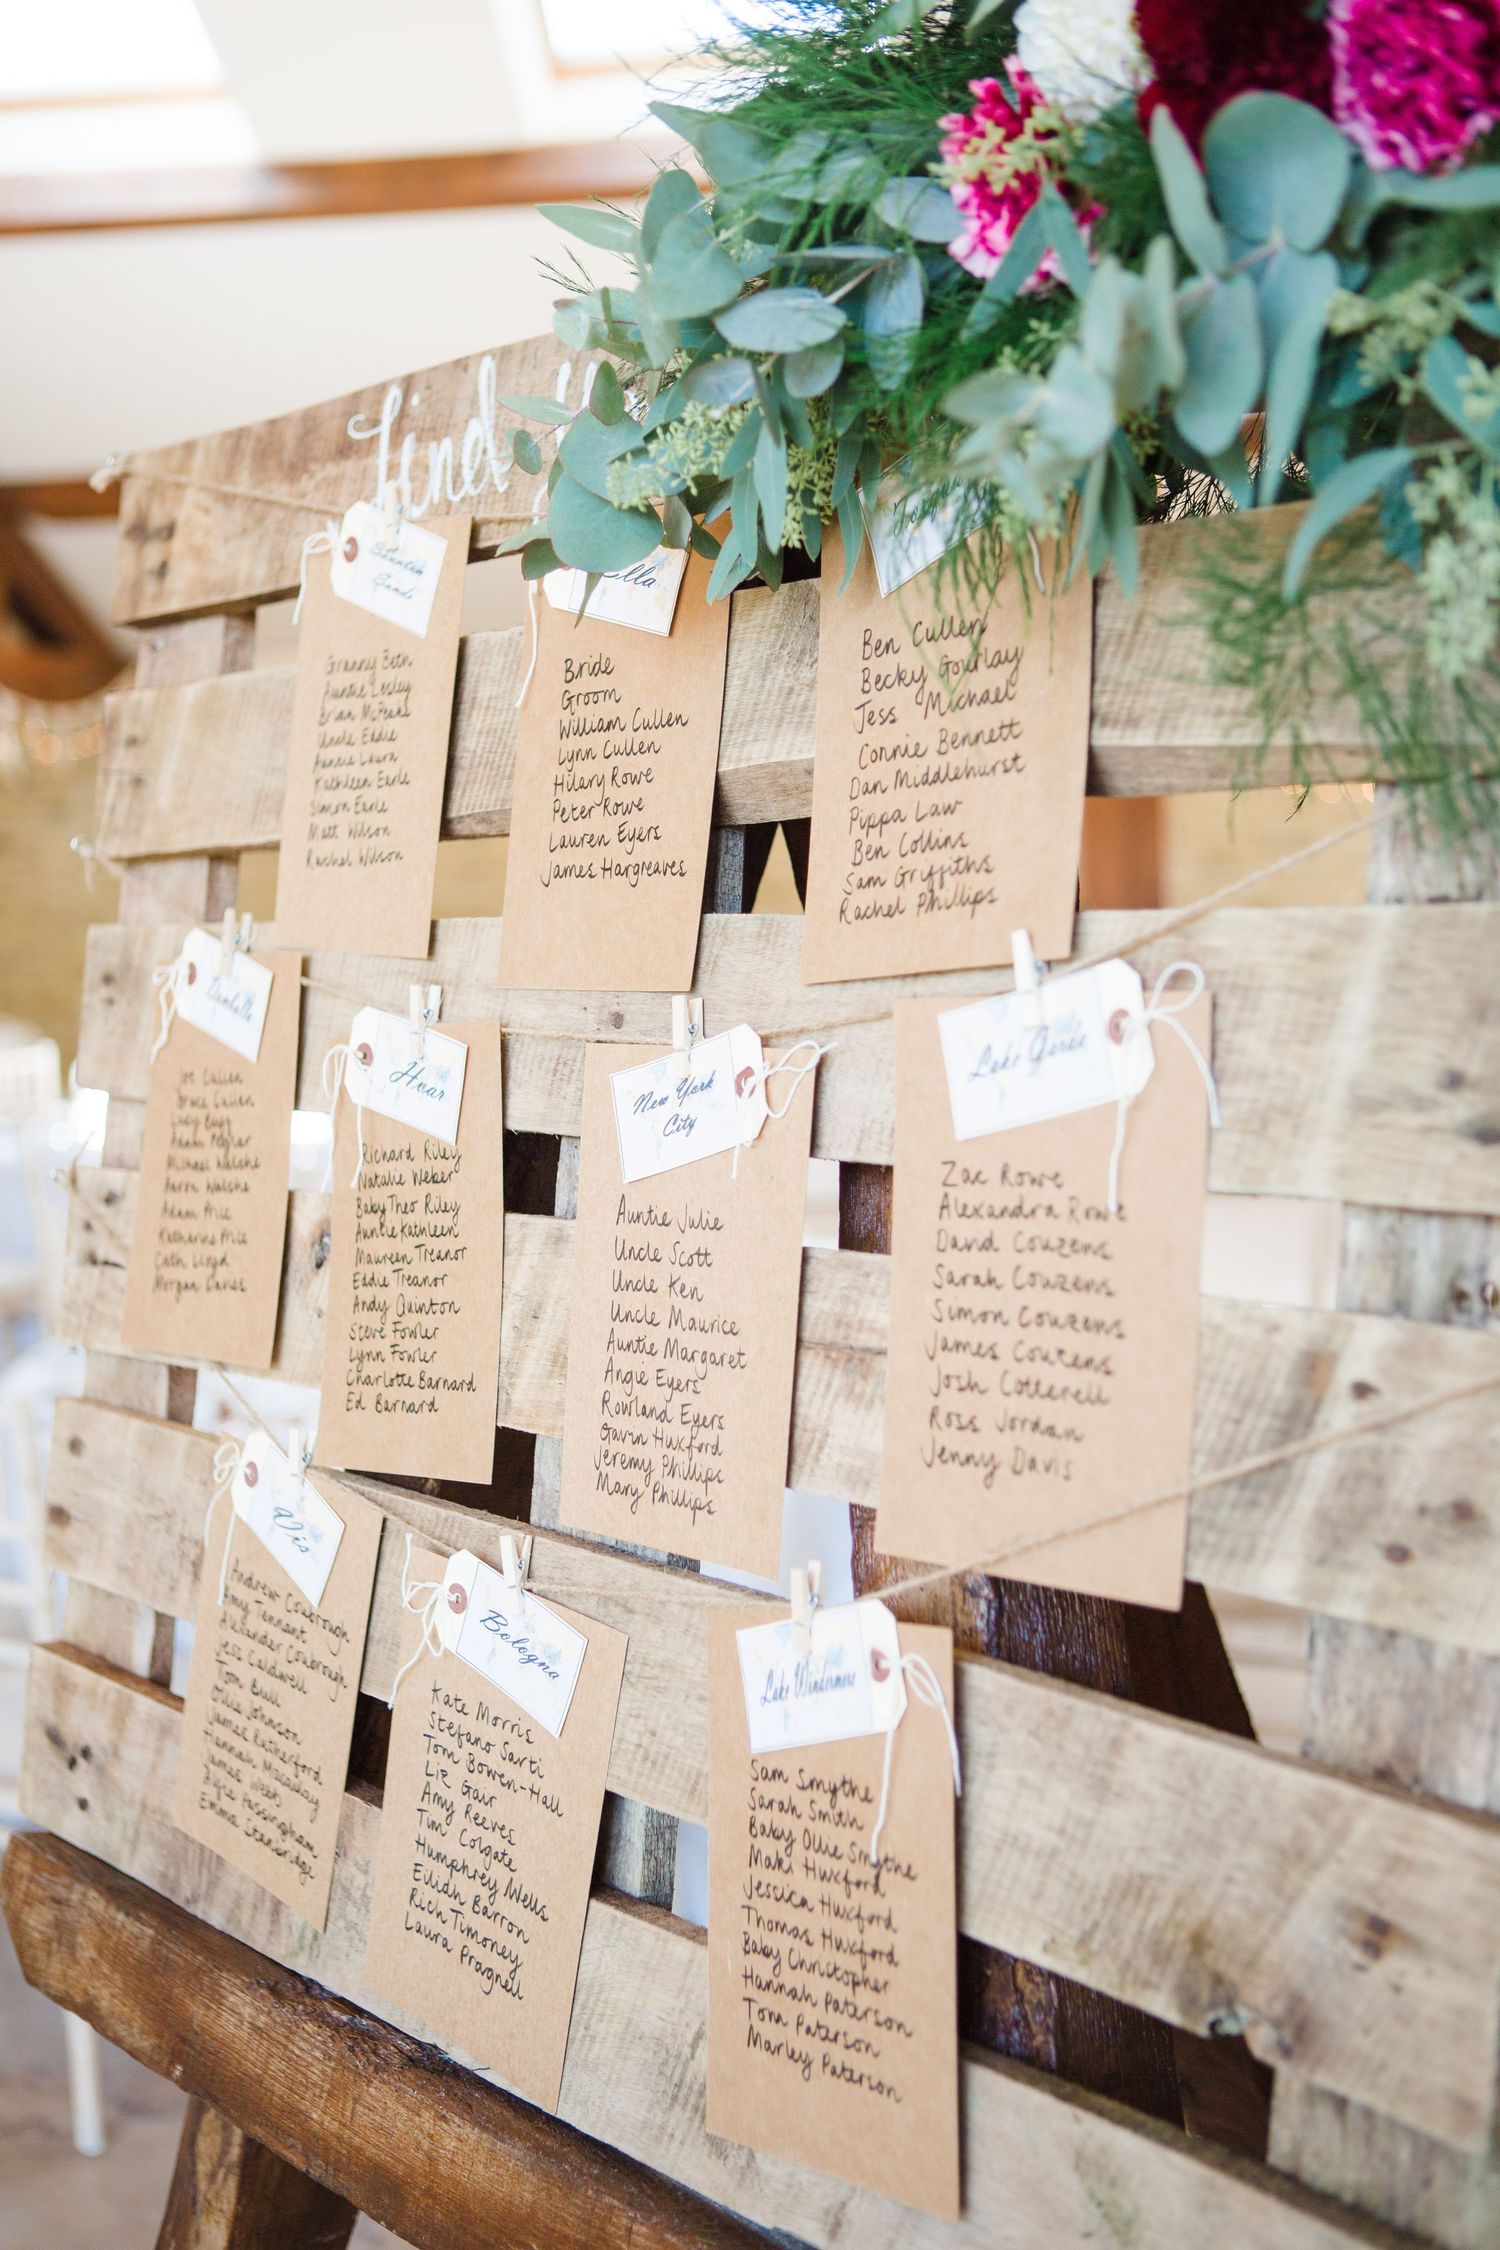 Find
Granny Beth
Auntie Lesley
Brian McPeake
Uncle Eddie
Auntie Laura
Kathleen Earle
Simon Earle
Matt Wilson
Rachel Wilson
Bride
Groom
William Cullen
Lynn Cullen
Hilary Rowe
Peter Rowe
Lauren Eyers
James Hargreaves
Ben Cullen
Becky Gourlay
Jess Michael
Connie Bennett
Dan Middlehurst
Pippa Law
Ben Collins
Sam Griffiths
Rachel Phillips
Dambulla
Joe Cullen
Cullen
Adam
Michael Walshe
Aaron Walshe
Adam Price
Katherine Price
Cath Lloyd
Morgan
Hvar
Richard Riley
Natalie Weber
Baby Theo Riley
Auntie Kathleen
Maureen Treanor
Eddie Treanor
Andy Quinton
Steve Fowler
Lynn Fowler
Charlotte Barnard
Ed Barnard
New York
City
Auntie Julie
Uncle Scott
Uncle Ken
Uncle Maurice
Auntie Margaret
Angie Eyers
Rowland Eyers
Gavin Huxford
Jeremy Phillips
Mary Phillips
Lake Garda
Zac Rowe
Alexandra Rowe
David Couzens
Sarah Couzens
Simon Couzens
James Couzens
Josh Cotterell
Ross Jordan
Jenny Davis
Vis
Andrew Cowbrough
Amy Tennant
Alexander Cowbrough
Jess Caldwell
Tom Bull
Ollie Johnson
James Rutherford
Hannah Macaulay
James Weeks
Passingham
Emma Stanbridge
Bologna
Kate Morris
Stefano Sarti
Tom Bowen-Hall
Liz Gair
Amy Reeves
Tim Colgate
Humphrey Wells
Eilidh Barron
Rich Timoney
Laura Pragnell
Lake Windermere
Sam Smythe
Sarah Smith
Baby Ollie Smythe
Maki Huxford
Jessica Huxford
Thomas Huxford
Baby Christopher
Hannah Paterson
Tom Paterson
Marley Paterson